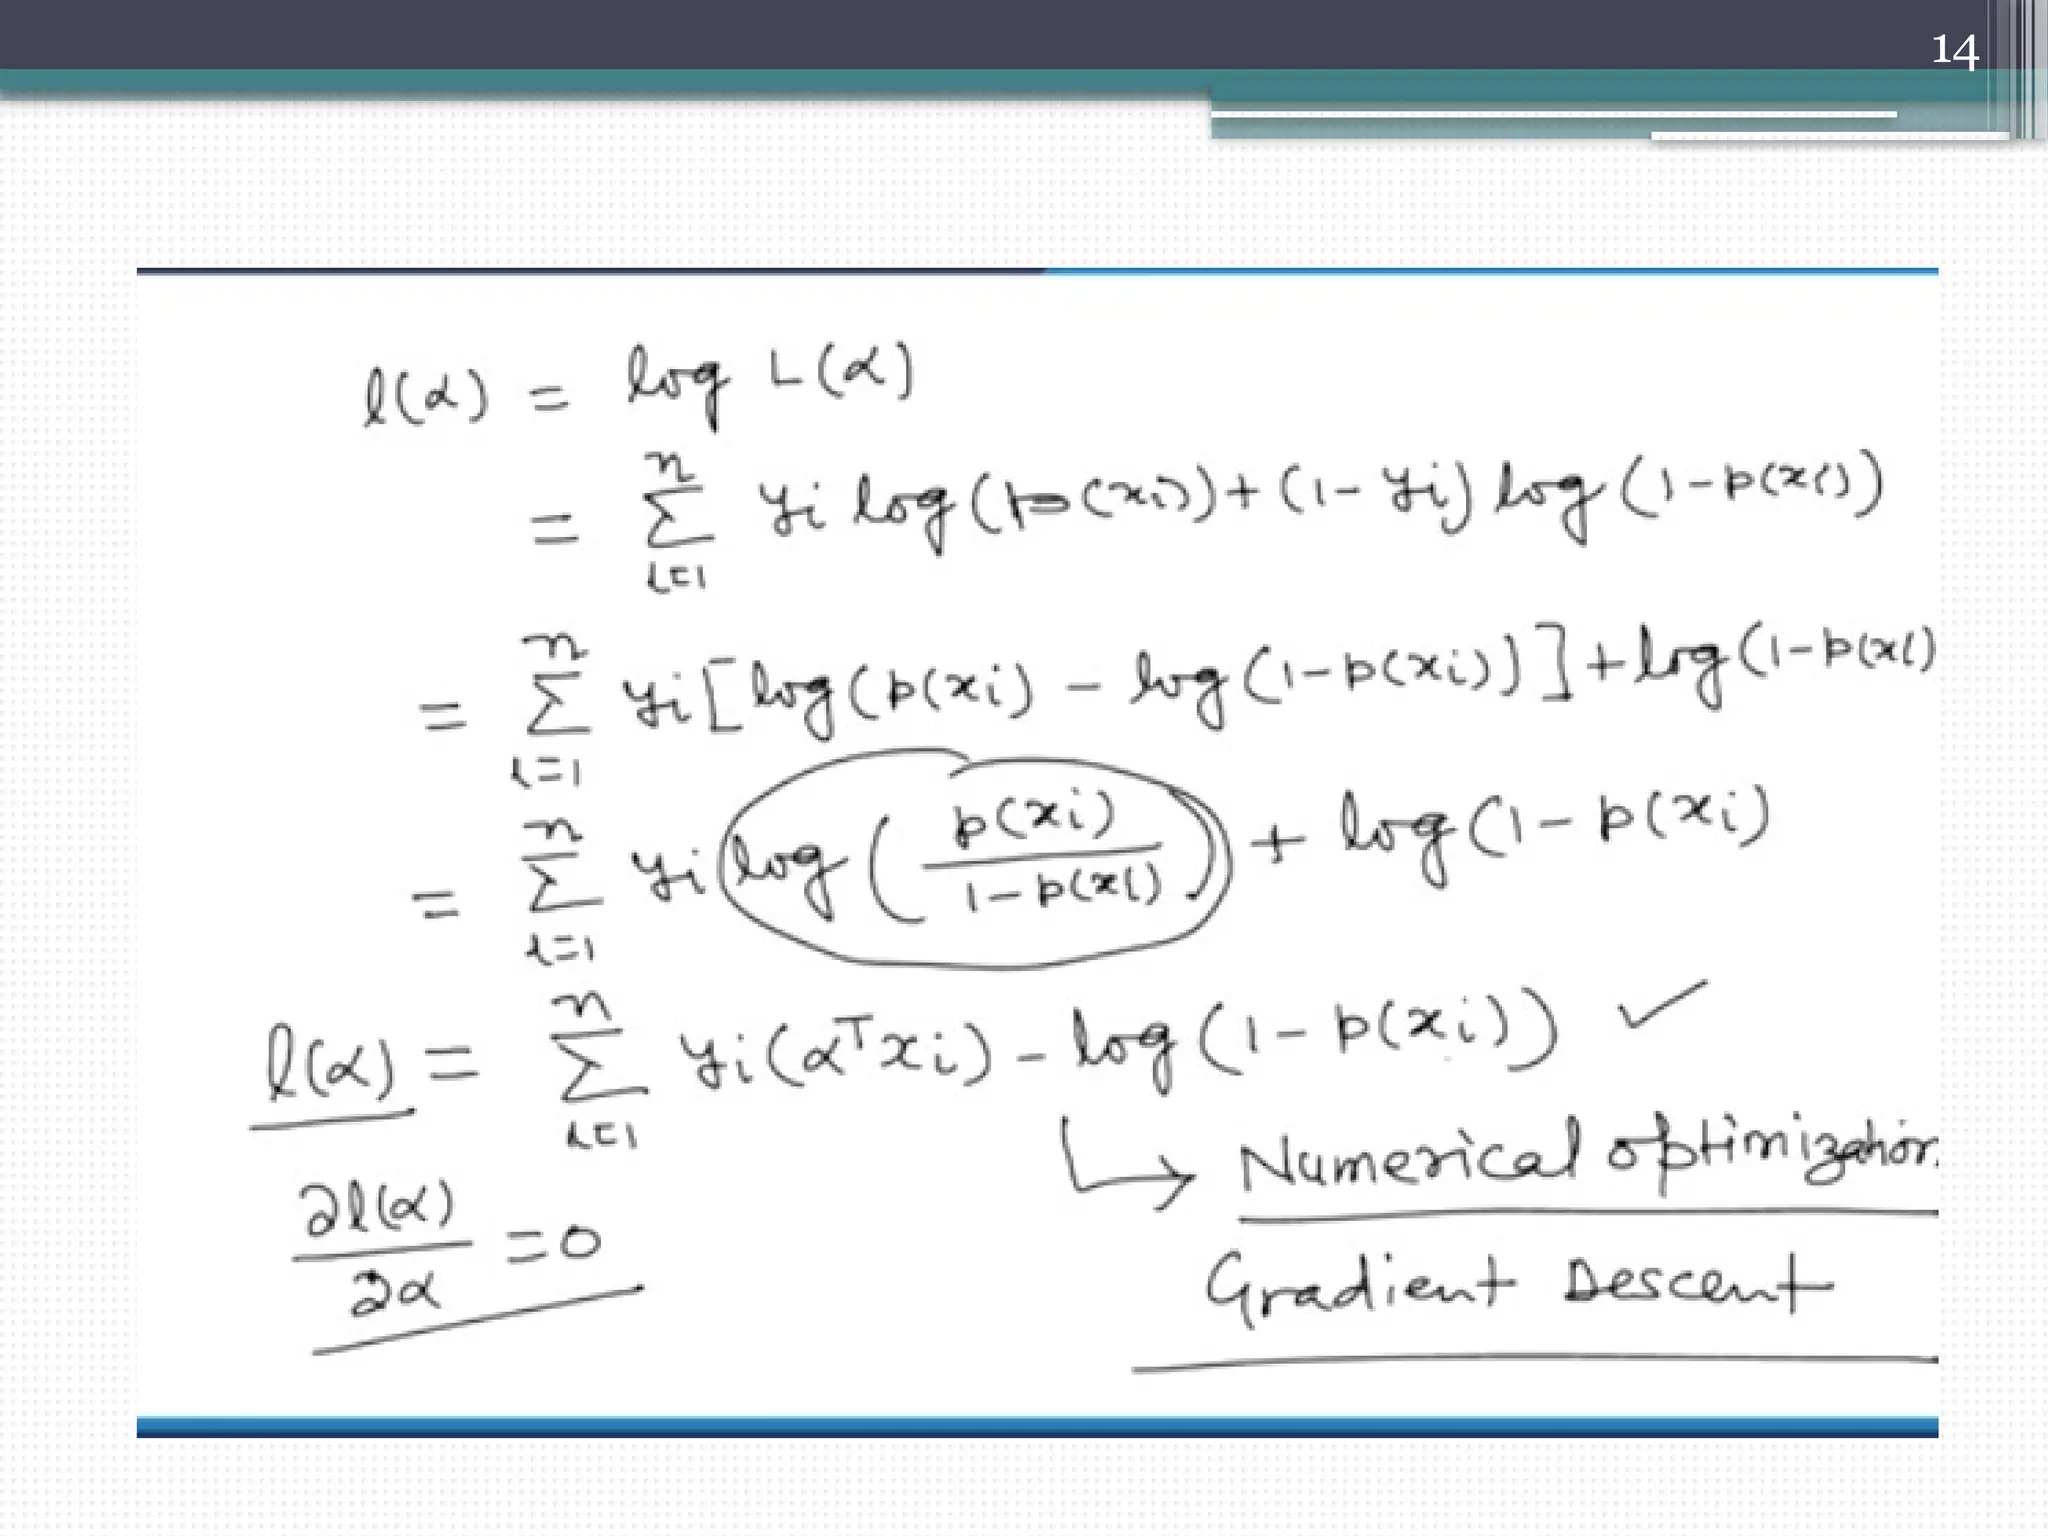 14
l(α) = log L(α)
= ∑ⁿᵢ₌₁ yᵢ log(p(xᵢ))+(1-yᵢ) log(1-p(xᵢ))
= ∑ⁿᵢ₌₁ yᵢ[log(p(xᵢ) - log(1-p(xᵢ))]+log(1-p(xᵢ)
= ∑ⁿᵢ₌₁ yᵢ log( p(xᵢ) / 1-p(xᵢ) ) + log(1-p(xᵢ)
l(α) = ∑ⁿᵢ₌₁ yᵢ(αᵀxᵢ) - log(1-p(xᵢ)) ✓
↳ Numerical optimization
∂l(α)/∂α = 0
Gradient Descent